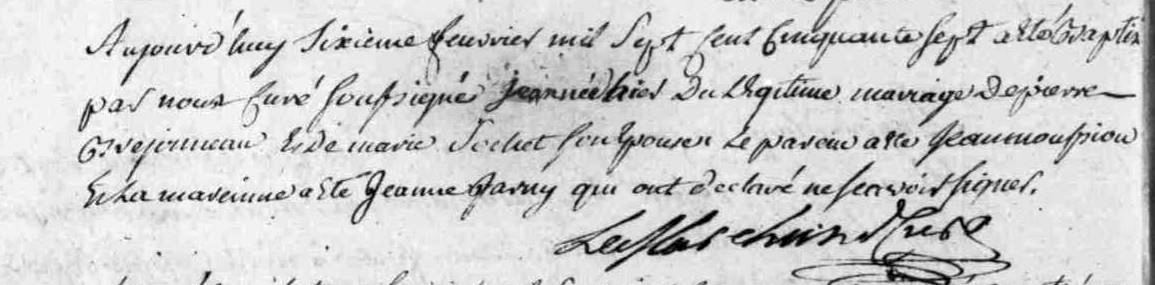 Aujourd'huy Sixieme feuvrier mil Sept Cent Cinquante Sept a esté Baptisé
par nous Curé soussigné Jean né hier Du Legitime mariage De pierre
Et De marie Sochet son Epouse Le parein a este Jean moussion
Et La mareinne a este Jeanne Jarny qui ont declaré ne scavoir signer.
Curé